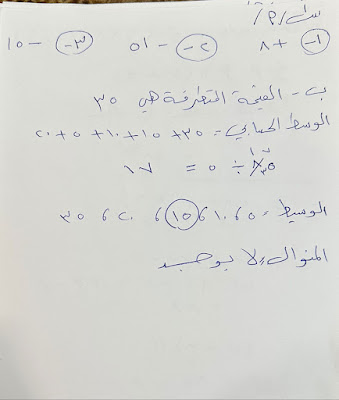 س١/أ/
(١-) + ٨ (٢-) - ٥١ (٣-) - ١٥
ب - القيمة المتطرفة هي ٣٥
الوسط الحسابي = ٣٥ + ١٥ + ١٠ + ٥ + ٢٠
٨٥ ÷ ٥ = ١٧
الوسيط = ٥ ، ١٠ ، ١٥ ، ٢٠ ، ٣٥
المنوال / لا يوجد